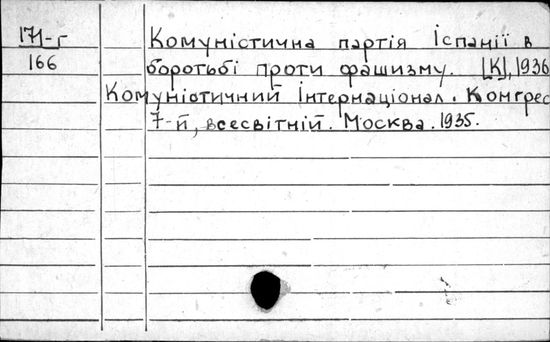 171-г
166
Комуністична партія Іспанії в
боротьбі проти фашизму. [К], 1936
Комуністичний Інтернаціонал. Конгрес
7-й, всесвітній. Москва. 1935.